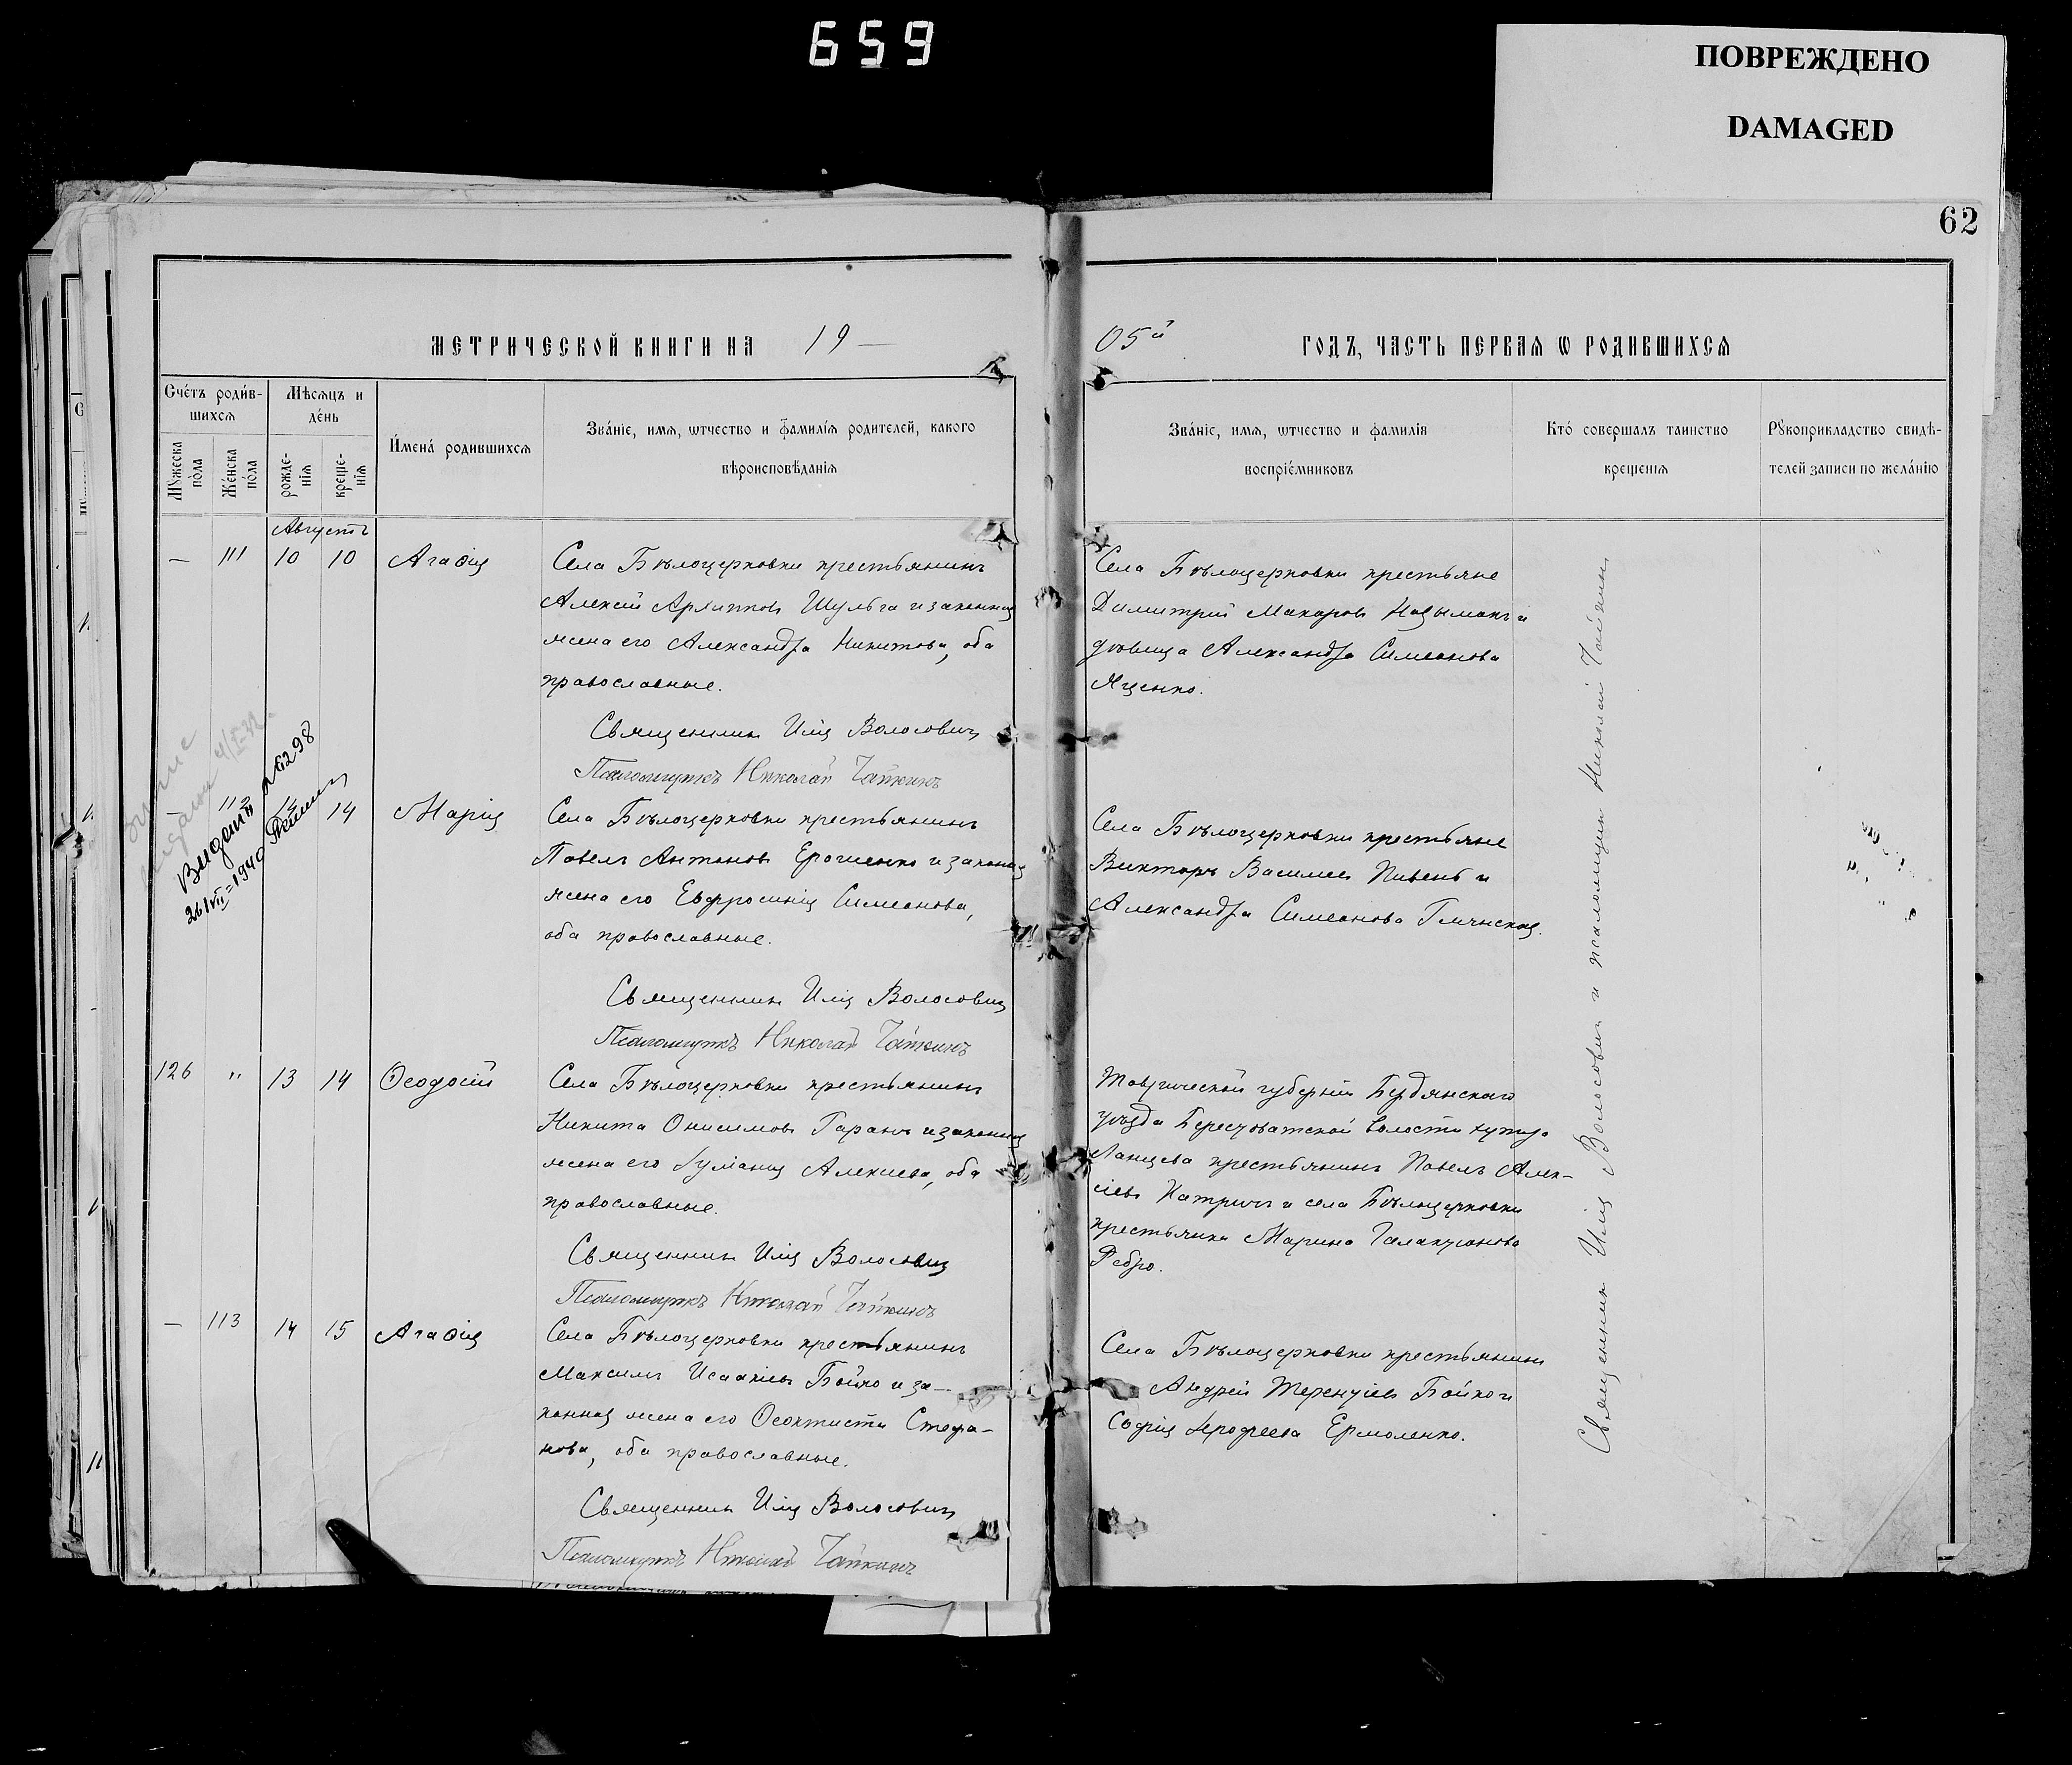 659
ПОВРЕЖДЕНО
DAMAGED
62
МЕТРИЧЕСКОЙ КНИГИ НА 19—
05й ГОДЪ, ЧАСТЬ ПЕРВАЯ Ѡ РОДИВШИХСЯ
Счетъ родив-
шихся
Мужеска пола
Женска пола
Мѣсяцъ и
день
рожде-
нія
креще-
нія
Имена родившихся
Званіе, имя, ѡтчество и фамилія родителей, какого
вѣроисповѣданія
Званіе, имя, ѡтчество и фамилія
воспріемниковъ
Кто совершалъ таинство
крещенія
Рукоприкладство свидѣ-
телей записи по желанію
Августъ
— 111 10 10 Агаѳія
Села Бѣлоцерковки крестьянинъ
Алексій Архиповъ Шульга и законная
жена его Александра Никитова, оба
православные.
Священникъ Илія Волосовичъ
Псаломщикъ Николай Чайкинъ
Села Бѣлоцерковки крестьяне
Димитрій Макаровъ и
дѣвица Александра Симеонова
Яценко.
— 112 14 14 Марія
Села Бѣлоцерковки крестьянинъ
Павелъ Антоновъ Ерошенко и законная
жена его Евфросинія Симеонова,
оба православные.
Священникъ Илія Волосовичъ
Псаломщикъ Николай Чайкинъ
Села Бѣлоцерковки крестьяне
Викторъ Василіевъ Пивень и
Александра Симеонова Глинская.
№ 6298
26/VII=1940
126 " 13 14 Ѳеодосій
Села Бѣлоцерковки крестьянинъ
Никита Онисимовъ Гаранъ и законная
жена его Іуліанія Алексіева, оба
православные.
Священникъ Илія Волосовичъ
Псаломщикъ Николай Чайкинъ
Таврической губерніи Бердянскаго
уѣзда Берестоватской волости хутора
Ланцева крестьянинъ Павелъ Алек-
сіевъ Катричъ и села Бѣлоцерковки
крестьянка Марина
Ребро.
— 113 14 15 Агаѳія
Села Бѣлоцерковки крестьянинъ
Максимъ Исаакіевъ Бойко и за-
конная жена его Ѳеоктиста Стефа-
нова, оба православные.
Священникъ Илія Волосовичъ
Псаломщикъ Николай Чайкинъ
Села Бѣлоцерковки крестьянинъ
Андрей Терентіевъ Бойко и
Софія Іерофеева Ермоленко.
Священникъ Илія Волосовичъ и псаломщикъ Николай Чайкинъ